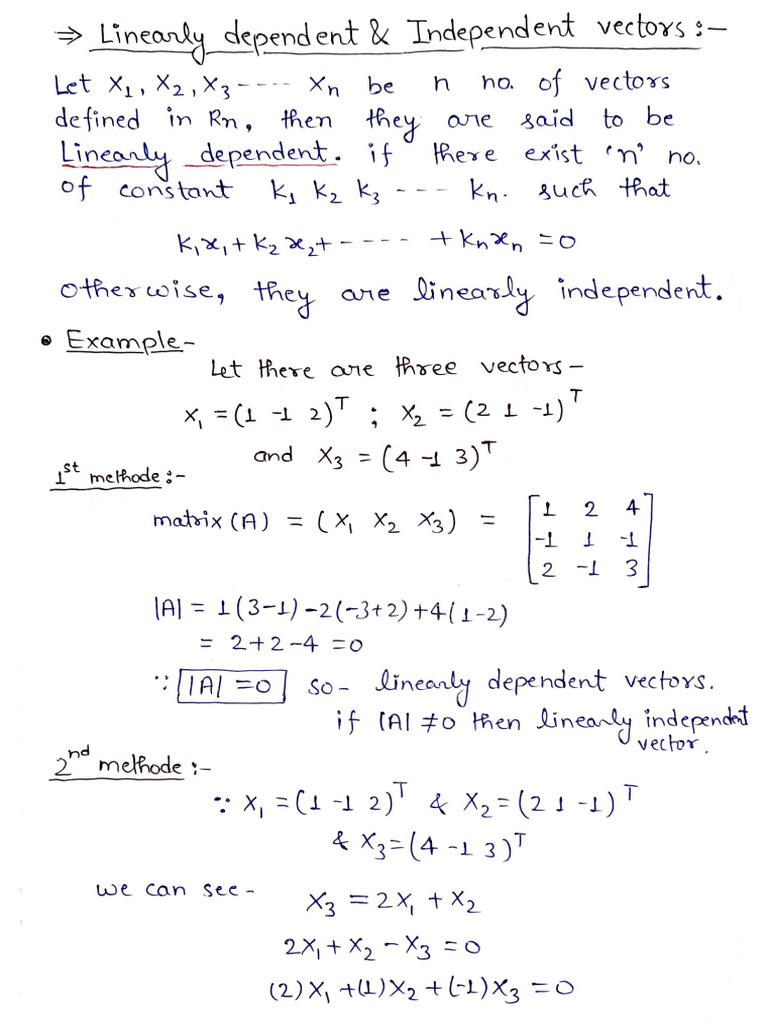 ⇒ Linearly dependent & Independent vectors :-
Let X₁, X₂, X₃ ---- Xn be n no. of vectors
defined in Rn, then they are said to be
Linearly dependent. if there exist 'n' no.
of constant k₁ k₂ k₃ --- kn. such that
k₁x₁ + k₂x₂ + ---- + knxn = 0
otherwise, they are linearly independent.
• Example -
Let there are three vectors -
X₁ = (1 -1 2)ᵀ ; X₂ = (2 1 -1)ᵀ
and X₃ = (4 -1 3)ᵀ
1st methode :-
matrix (A) = (X₁ X₂ X₃) = [1 2 4
-1 1 -1
2 -1 3]
|A| = 1(3-1) -2(-3+2) +4(1-2)
= 2+2-4 = 0
∵ |A| = 0 so - linearly dependent vectors.
if |A| ≠ 0 then linearly independent
vector.
2nd methode :-
∵ X₁ = (1 -1 2)ᵀ & X₂ = (2 1 -1)ᵀ
& X₃ = (4 -1 3)ᵀ
we can see -
X₃ = 2X₁ + X₂
2X₁ + X₂ - X₃ = 0
(2)X₁ + (1)X₂ + (-1)X₃ = 0